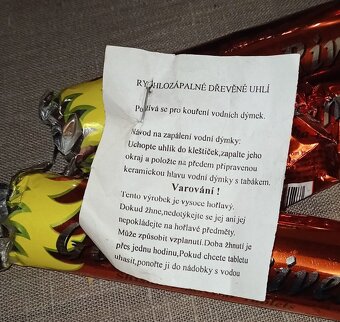 RYCHLOZÁPALNÉ DŘEVĚNÉ UHLÍ
Používá se pro kouření vodních dýmek.
Návod na zapálení vodní dýmky:
Uchopte uhlík do kleštiček,zapalte jeho
okraj a položte na předem připravenou
keramickou hlavu vodní dýmky s tabákem.
Varování !
Tento výrobek je vysoce hořlavý.
Dokud žhne,nedotýkejte se jej ani jej
nepokládejte na hořlavé předměty.
Může způsobit vzplanutí.Doba žhnutí je
přes jednu hodinu,Pokud chcete tabletu
uhasit,ponořte ji do nádobky s vodou